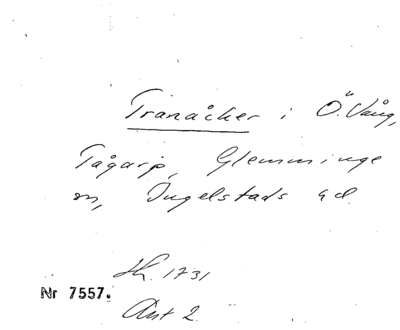 Tranåcker i Ö. Vång,
Tågarp, Glemminge
sn, Ingelstads hd.
Sk. 1731
Nr 7557.
Akt 2